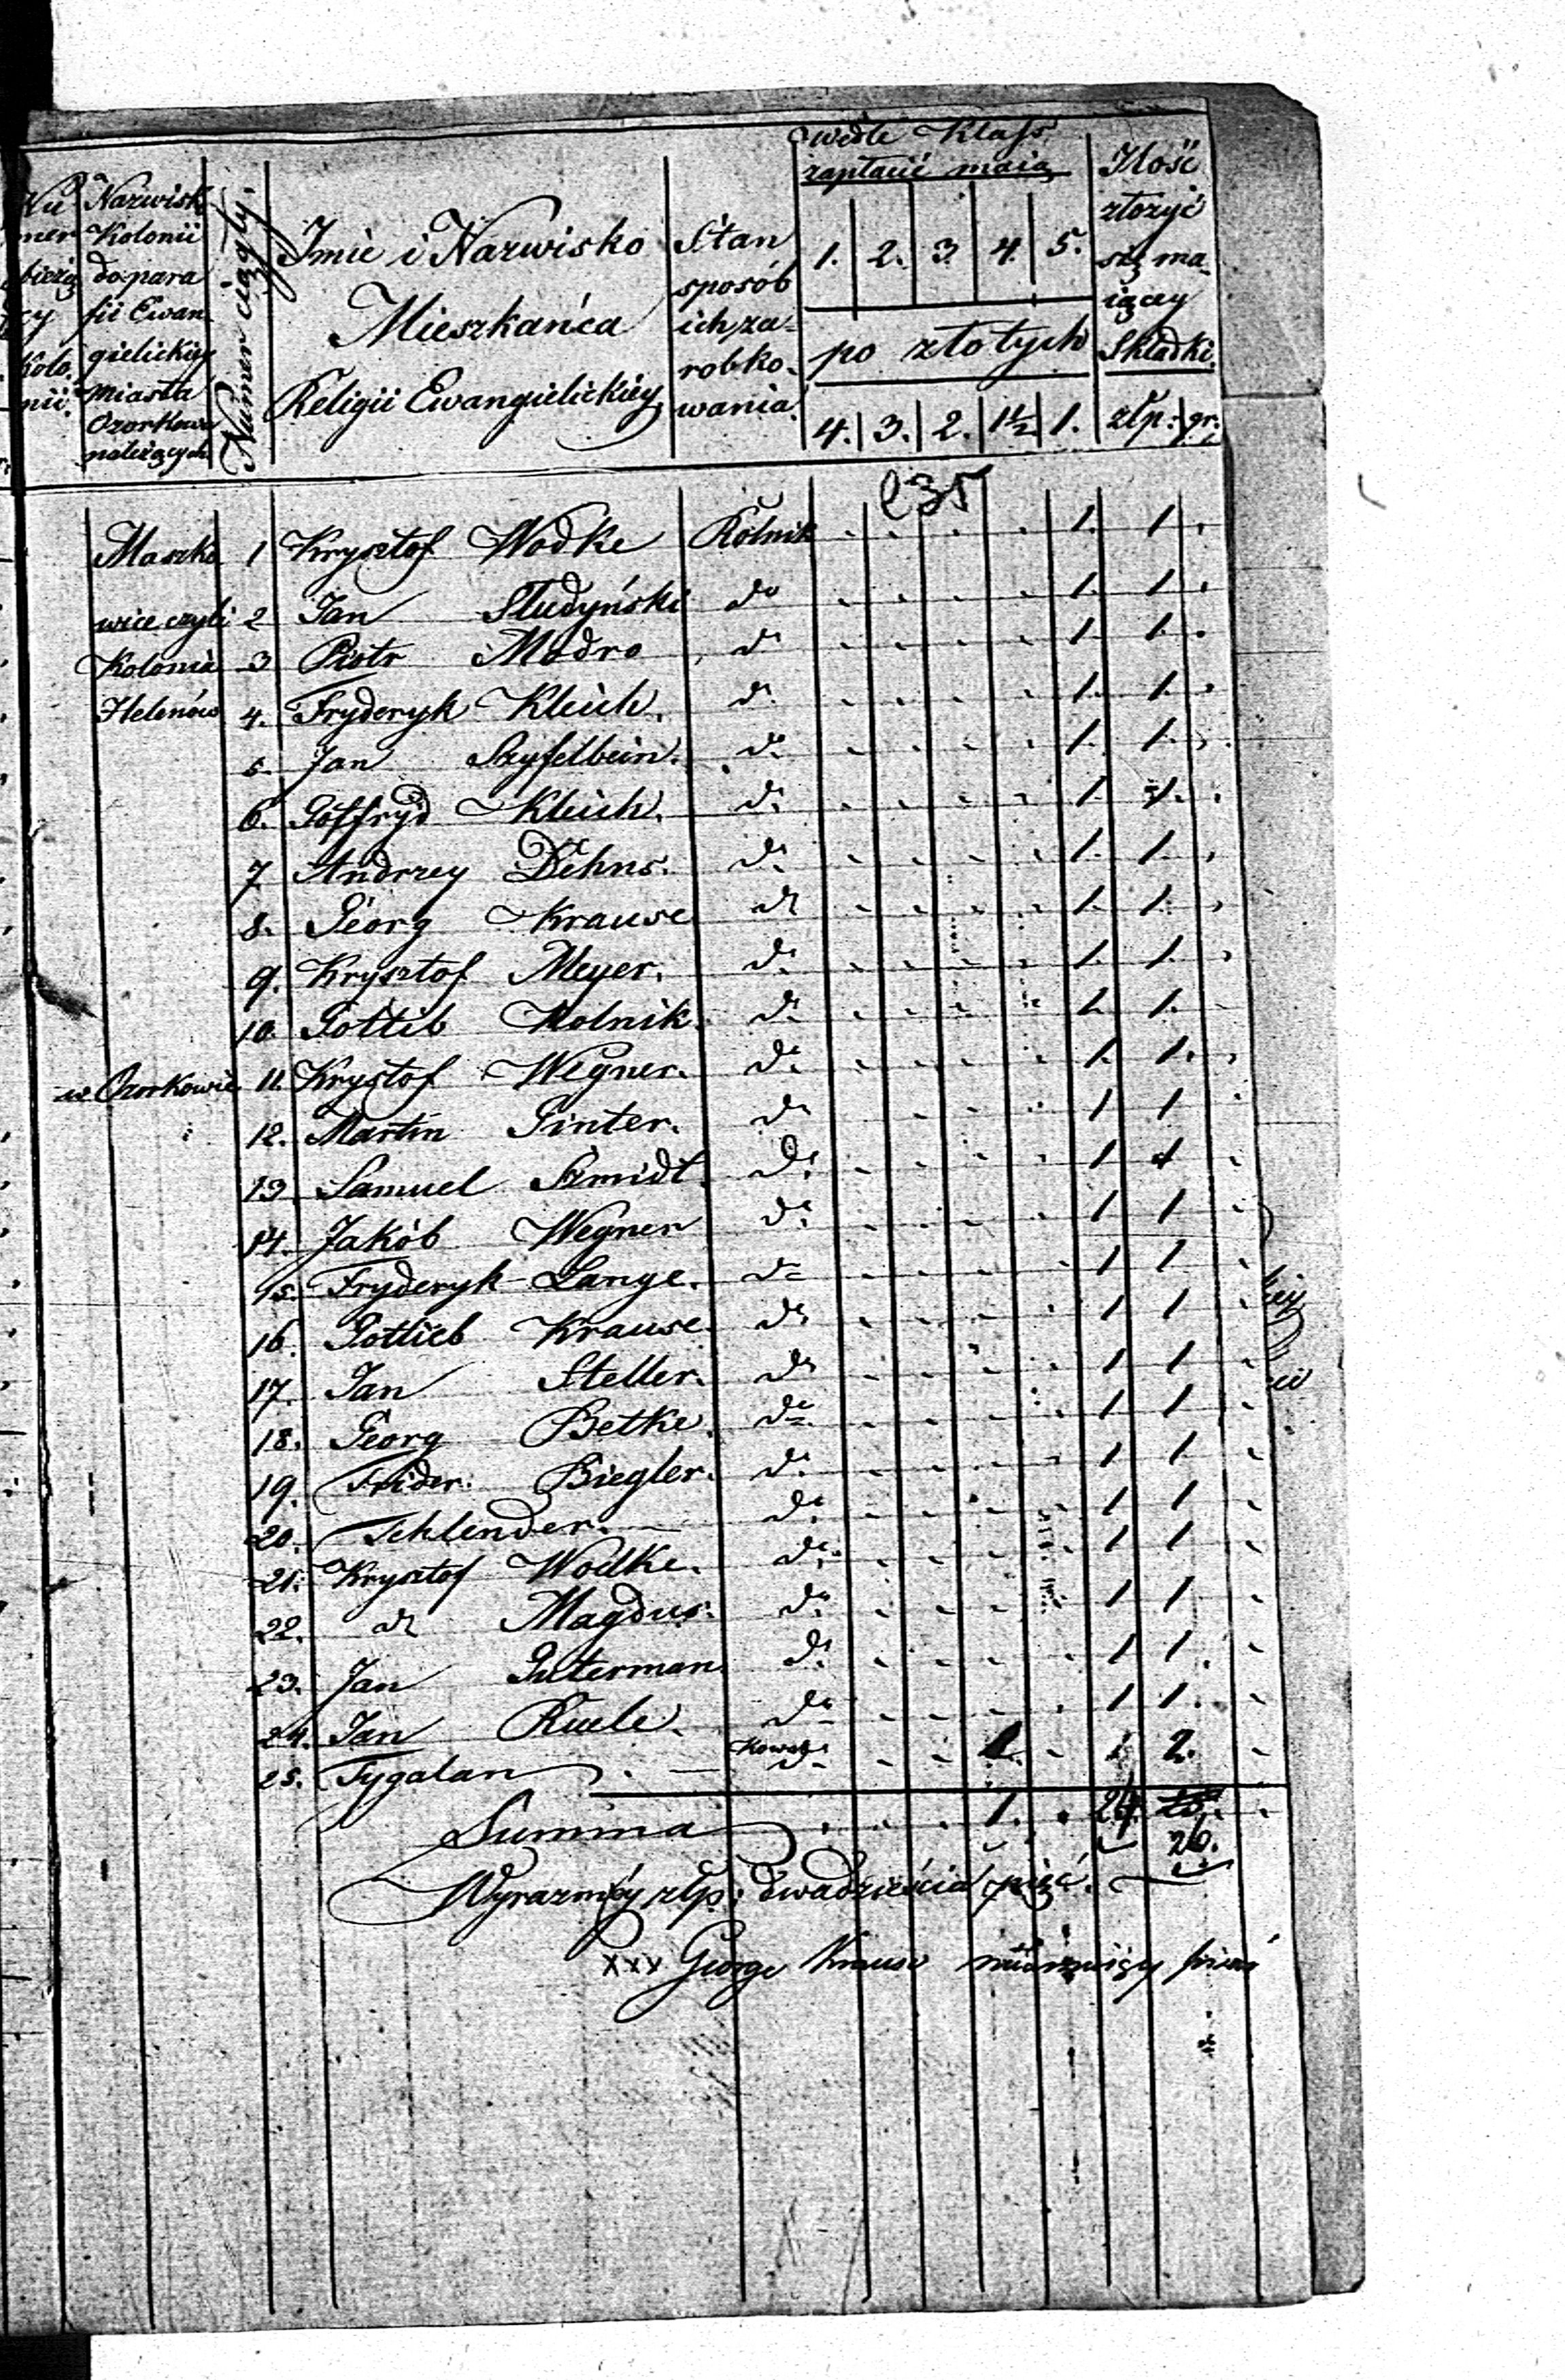 wedle Klass
zapłacić maią
Nu
mer
bieżą
cy
Kolo
nii.
Nazwisk
Kolonii
do para
fii Ewan
gielickiey
Miasta
Ozorkowa
należących
Numer ciągły.
Imie i Nazwisko
Mieszkańca
Religii Ewangielickiey
Stan
sposób
ich za-
robko-
wania.
1. 2. 3. 4. 5.
po złotych
4. 3. 2. 1½ 1.
Ilość
złożyć
się ma-
iącey
Składki.
złp: gr:
235
Maszko 1 Krysztof Wodke Rolnik 1. 1.
wice czyli 2 Jan Studyński do 1. 1.
Kolonia 3 Piotr Modro do 1. 1.
Helenów 4. Fryderyk Kleich. do 1. 1.
5. Jan Szyfelbein. do 1. 1.
6. Gottfryd Kleich. do 1. 1.
7 Andrzey Dehns. do 1. 1.
8. Georg Krause do 1. 1.
9. Krysztof Meyer. do 1. 1.
10. Gottlib Molnik. do 1. 1.
w Ozorkowie 11. Krysztof Wegner. do 1. 1.
12. Martin Ginter. do 1 1
13 Samuel Szmidt. do 1 1
14. Jakób Wegner do 1 1
15. Fryderyk Lange. do 1 1
16. Gottlieb Krause. do 1 1
17. Jan Steller. do 1 1
18. Georg Betke. do 1 1
19. Frider. Biegler. do 1 1
20. Schlender. do 1 1
21. Krysztof Wodke. do 1 1
22. do Magdus. do 1 1
23. Jan Guterman do 1 1.
24. Jan Ruele. do 1 1.
25. Tygalan do 1. 1 2.
Summa 1. 24 25.
26.
Wyrazniey złp: dwadzieścia pięć.
XXX George Krause